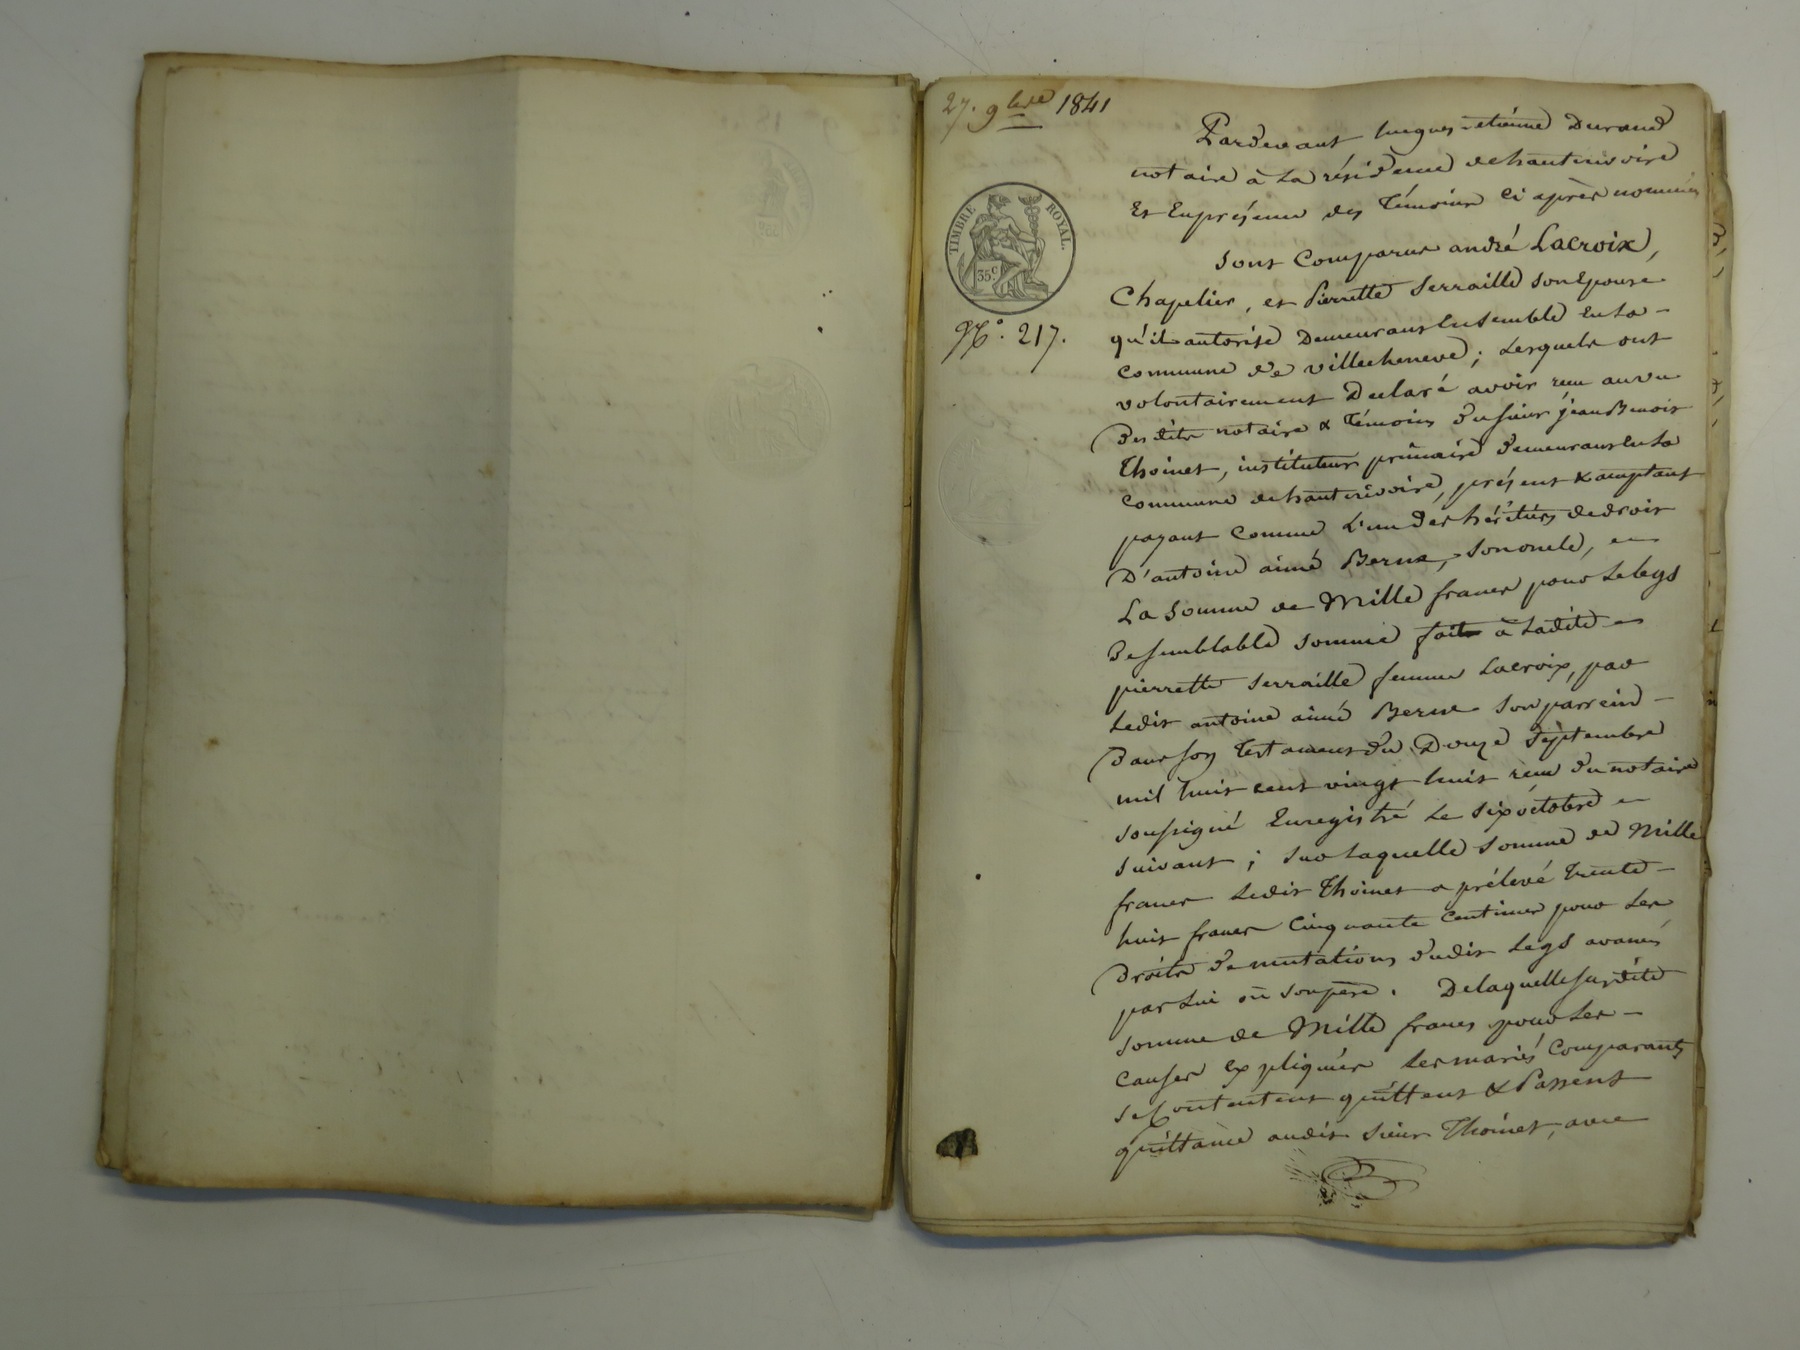 27. 9bre 1841
TIMBRE ROYAL.
35c
No. 217.
Pardevant hugues-etienne Durand
notaire à La résidence dehauterivoire
Et Enprésence des Témoins ci après nommés
sont Comparus andré Lacroix,
Chapelier, et Pierrette Serraille sonEpouse
qu'il autorise DemeurantEnsemble EnLa -
commune de villecheneve ; Lesquels ont
volontairement Declaré avoir reçu auvu
desdits notaire & Témoins dusieur jeanBenoit
Thoinet, instituteur primaire demeurantEnLa
commune dehauterivoire, présent & acceptant
payant comme L'un des héritiers dedroit
D'antoine aimé Berne, sononcle,
La somme de Mille francs pour Lelegs
desemblable somme fait à Ladite
pierrette serraille femme Lacroix, par
Ledit antoine aimé Berne son parrein -
dans son Testament du Douze septembre
mil huit cent vingt huit reçu du notaire
soussigné Enregistré Le six octobre
suivant ; sur Laquelle somme de Mille
francs Ledit Thoinet a prélevé Trente -
huit francs Cinquante centimes pour Les
Droits de mutations dudit Legs avancés
par Lui ou sonpère. DelaquelleSusdite
somme de Mille francs pour Les -
causes Expliquées Les mariés Comparants
seContentent quittent & Passent
quittance audit sieur Thoinet, avec